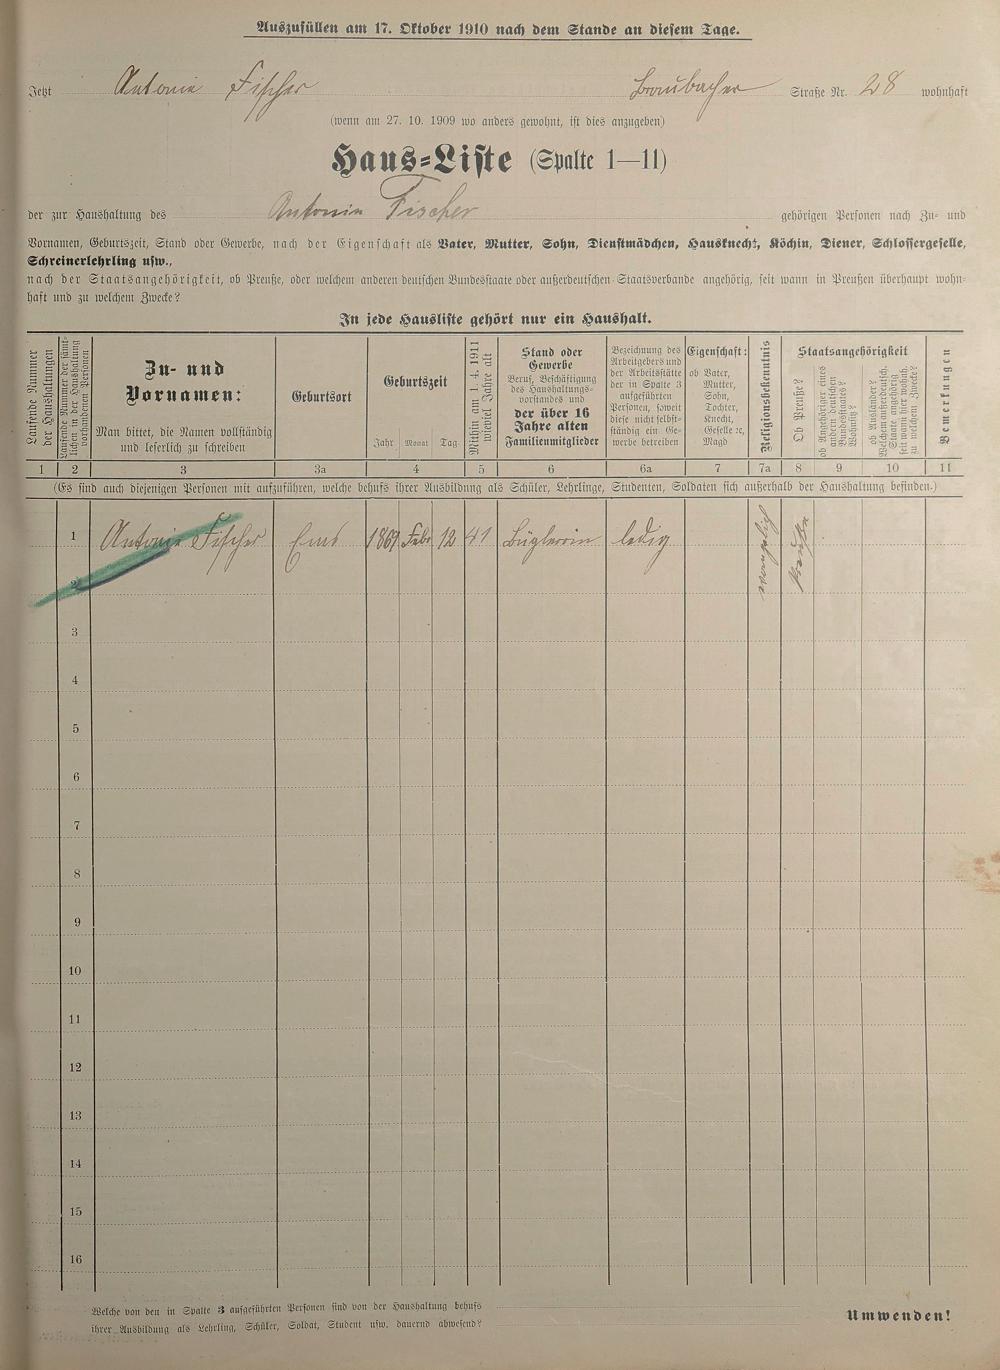 Auszufüllen am 17. Oktober 1910 nach dem Stande an diesem Tage.
Jetzt Antonie Fischer Braubacher Straße Nr. 28 wohnhaft
(wenn am 27. 10. 1909 wo anders gewohnt, ist dies anzugeben)
Haus=Liste (Spalte 1—11)
der zur Haushaltung des Antonie Fischer gehörigen Personen nach Zu- und
Vornamen, Geburtszeit, Stand oder Gewerbe, nach der Eigenschaft als Vater, Mutter, Sohn, Dienstmädchen, Hausknecht, Köchin, Diener, Schlossergeselle,
Schreinerlehrling usw.,
nach der Staatsangehörigkeit, ob Preuße, oder welchem anderen deutschen Bundesstaate oder außerdeutschen Staatsverbande angehörig, seit wann in Preußen überhaupt wohn-
haft und zu welchem Zwecke?
In jede Hausliste gehört nur ein Haushalt.
Laufende Nummer
der Haushaltungen
Laufende Nummer der sämt-
lichen in der Haushaltung
vorhandenen Personen
Zu- und
Vornamen:
Man bittet, die Namen vollständig
und leserlich zu schreiben
Geburtsort
Geburtszeit
Jahr Monat Tag
Mithin am 1. 4. 1911
wieviel Jahre alt
Stand oder
Gewerbe
Beruf, Beschäftigung
des Haushaltungs-
vorstandes und
der über 16
Jahre alten
Familienmitglieder
Bezeichnung des
Arbeitgebers und
der Arbeitsstätte
der in Spalte 3
aufgeführten
Personen, soweit
diese nicht selbst-
ständig ein Ge-
werbe betreiben
Eigenschaft:
ob Vater,
Mutter,
Sohn,
Tochter,
Knecht,
Geselle ꝛc,
Magd
Religionsbekenntnis
Staatsangehörigkeit
Ob Preuße?
ob Angehöriger eines
andern deutschen
Bundesstaates?
Wohnsitz?
ob Ausländer?
Welchem außerdeutsch.
Staate angehörig
seit wann hier wohnh.
zu welchem Zwecke?
Bemerkungen
1 2 3 3a 4 5 6 6a 7 7a 8 9 10 11
(Es sind auch diejenigen Personen mit aufzuführen, welche behufs ihrer Ausbildung als Schüler, Lehrlinge, Studenten, Soldaten sich außerhalb der Haushaltung befinden.)
1 Antonie Fischer Ems 1869 Febr 12 41 Büglerin ledig evangelisch Preuße
2
3
4
5
6
7
8
9
10
11
12
13
14
15
16
Welche von den in Spalte 3 aufgeführten Personen sind von der Haushaltung behufs
ihrer Ausbildung als Lehrling, Schüler, Soldat, Student usw. dauernd abwesend?
Umwenden!